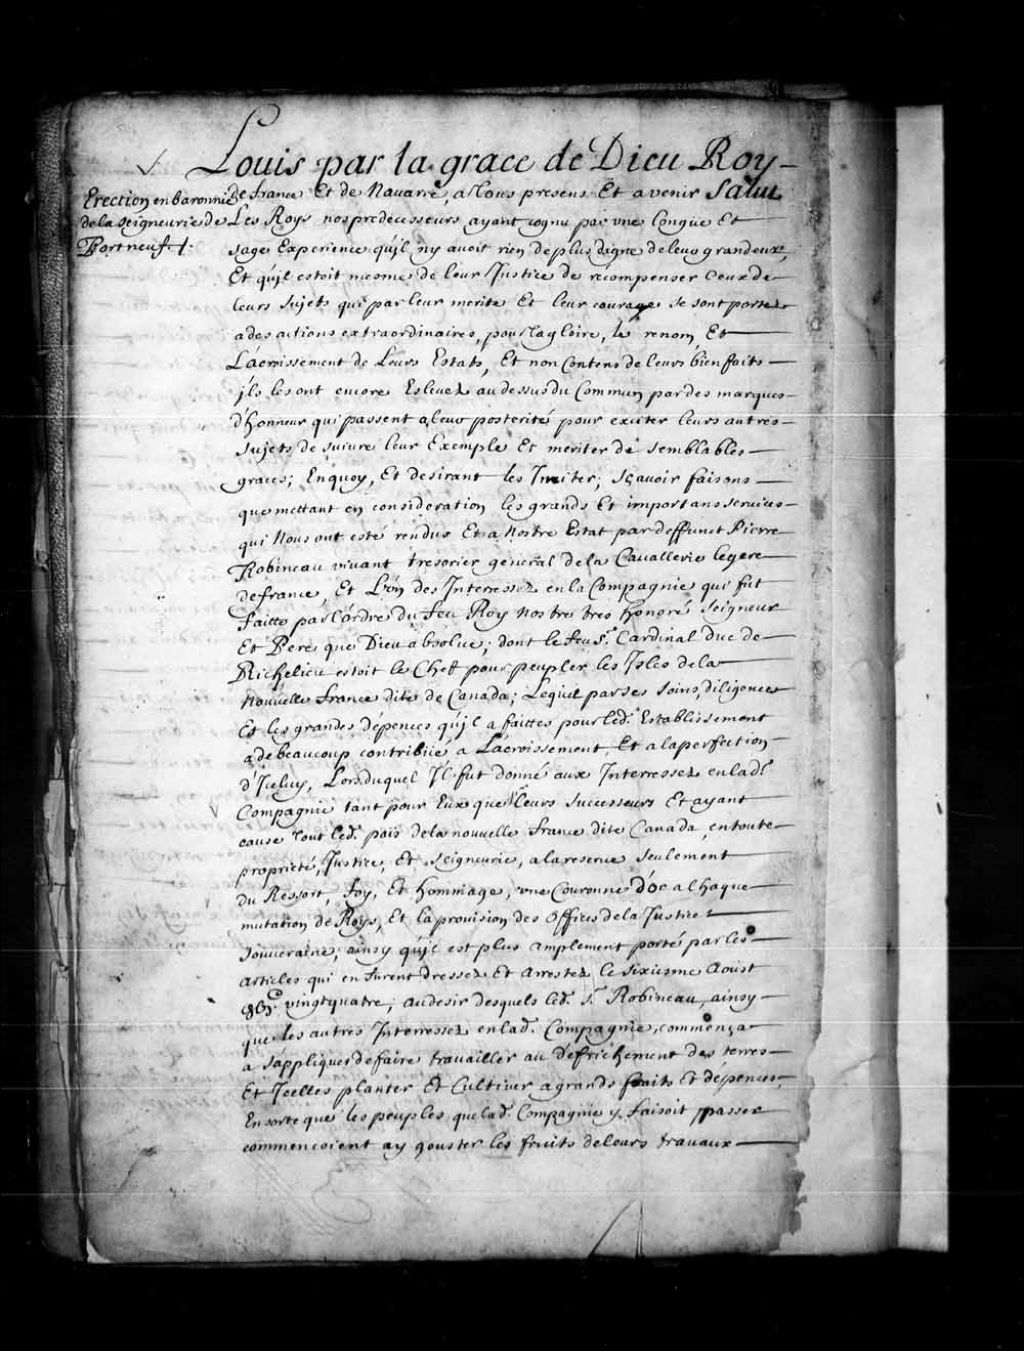 Louis par la grace de Dieu Roy
Erection en baronnie
de la seigneurie de
Portneuf
de france Et de Navarre, a Tous presens Et avenir Salut
Les Roys nos predecesseurs ayant cognu par vne Longue Et
sage Experience qu'jl ny avoit rien de plus digne de leur grandeur,
Et qu'jl estoit mesme de leur Justice de recompenser Ceux de
leurs Sujets qui par leur merite Et leur courage se sont portez
a des actions extraordinaires, pour la gloire, le renom, Et
Lacroissement de Leurs Estats, Et non Contens de leurs bienfaits
jls les ont encore Esleuez au dessus du Commun par des marques
d'honneur qui passent a leur posterité pour exciter leurs autres
sujets de suivre leur Exemple Et meriter de semblables
graces; En quoy, Et desirant les Jmiter; sçavoir faisons
que mettant en consideration les grands Et importans services
qui Nous ont esté rendus Et a Nostre Estat par deffunct Pierre
Robineau vivant tresorier general de la Cavallerie legere
de france, Et L'un des Interressez en la Compagnie qui fut
faitte par l'ordre du feu Roy Nostre tres honoré Seigneur
Et Pere que Dieu absolve; dont le feu Sr. Cardinal duc de
Richelieu estoit le Chef pour peupler les Isles de la
Nouvelle france dite de Canada; Lequel par ses soins, diligences
Et les grandes dépences qu'jl a faittes pour led. Establissement
a de beaucoup contribüé a Lacroissement Et a la perfection
d'Jceluy, Lors duquel Jl fut donné aux Interressez en lad.
Compagnie tant pour Eux que Leurs Successeurs Et ayant
cause Tout led. païs de la nouvelle france dite Canada, en toute
proprieté, Justice, Et Seigneurie, a la reserve seulement
du Ressort, foy, Et hommage, vne Couronne d'or a chaque
mutation de Roys, Et la provision des Offices de la Justice
Souveraine; ainsy qu'jl est plus amplement porté par les
articles qui en furent dressez Et arrestez le sixiesme Aoust
vingt quatre; au desir desquels led. Sr. Robineau, ainsy
que les autres Interressez en lad. Compagnie, commença
a s'appliquer de faire travailler au défrichement des terres
Et Jcelles planter Et Cultiver a grands fraits Et dépences,
En sorte que les peuples que lad. Compagnie y faisoit passer
commencoient a y gouster les fruits de leurs travaux